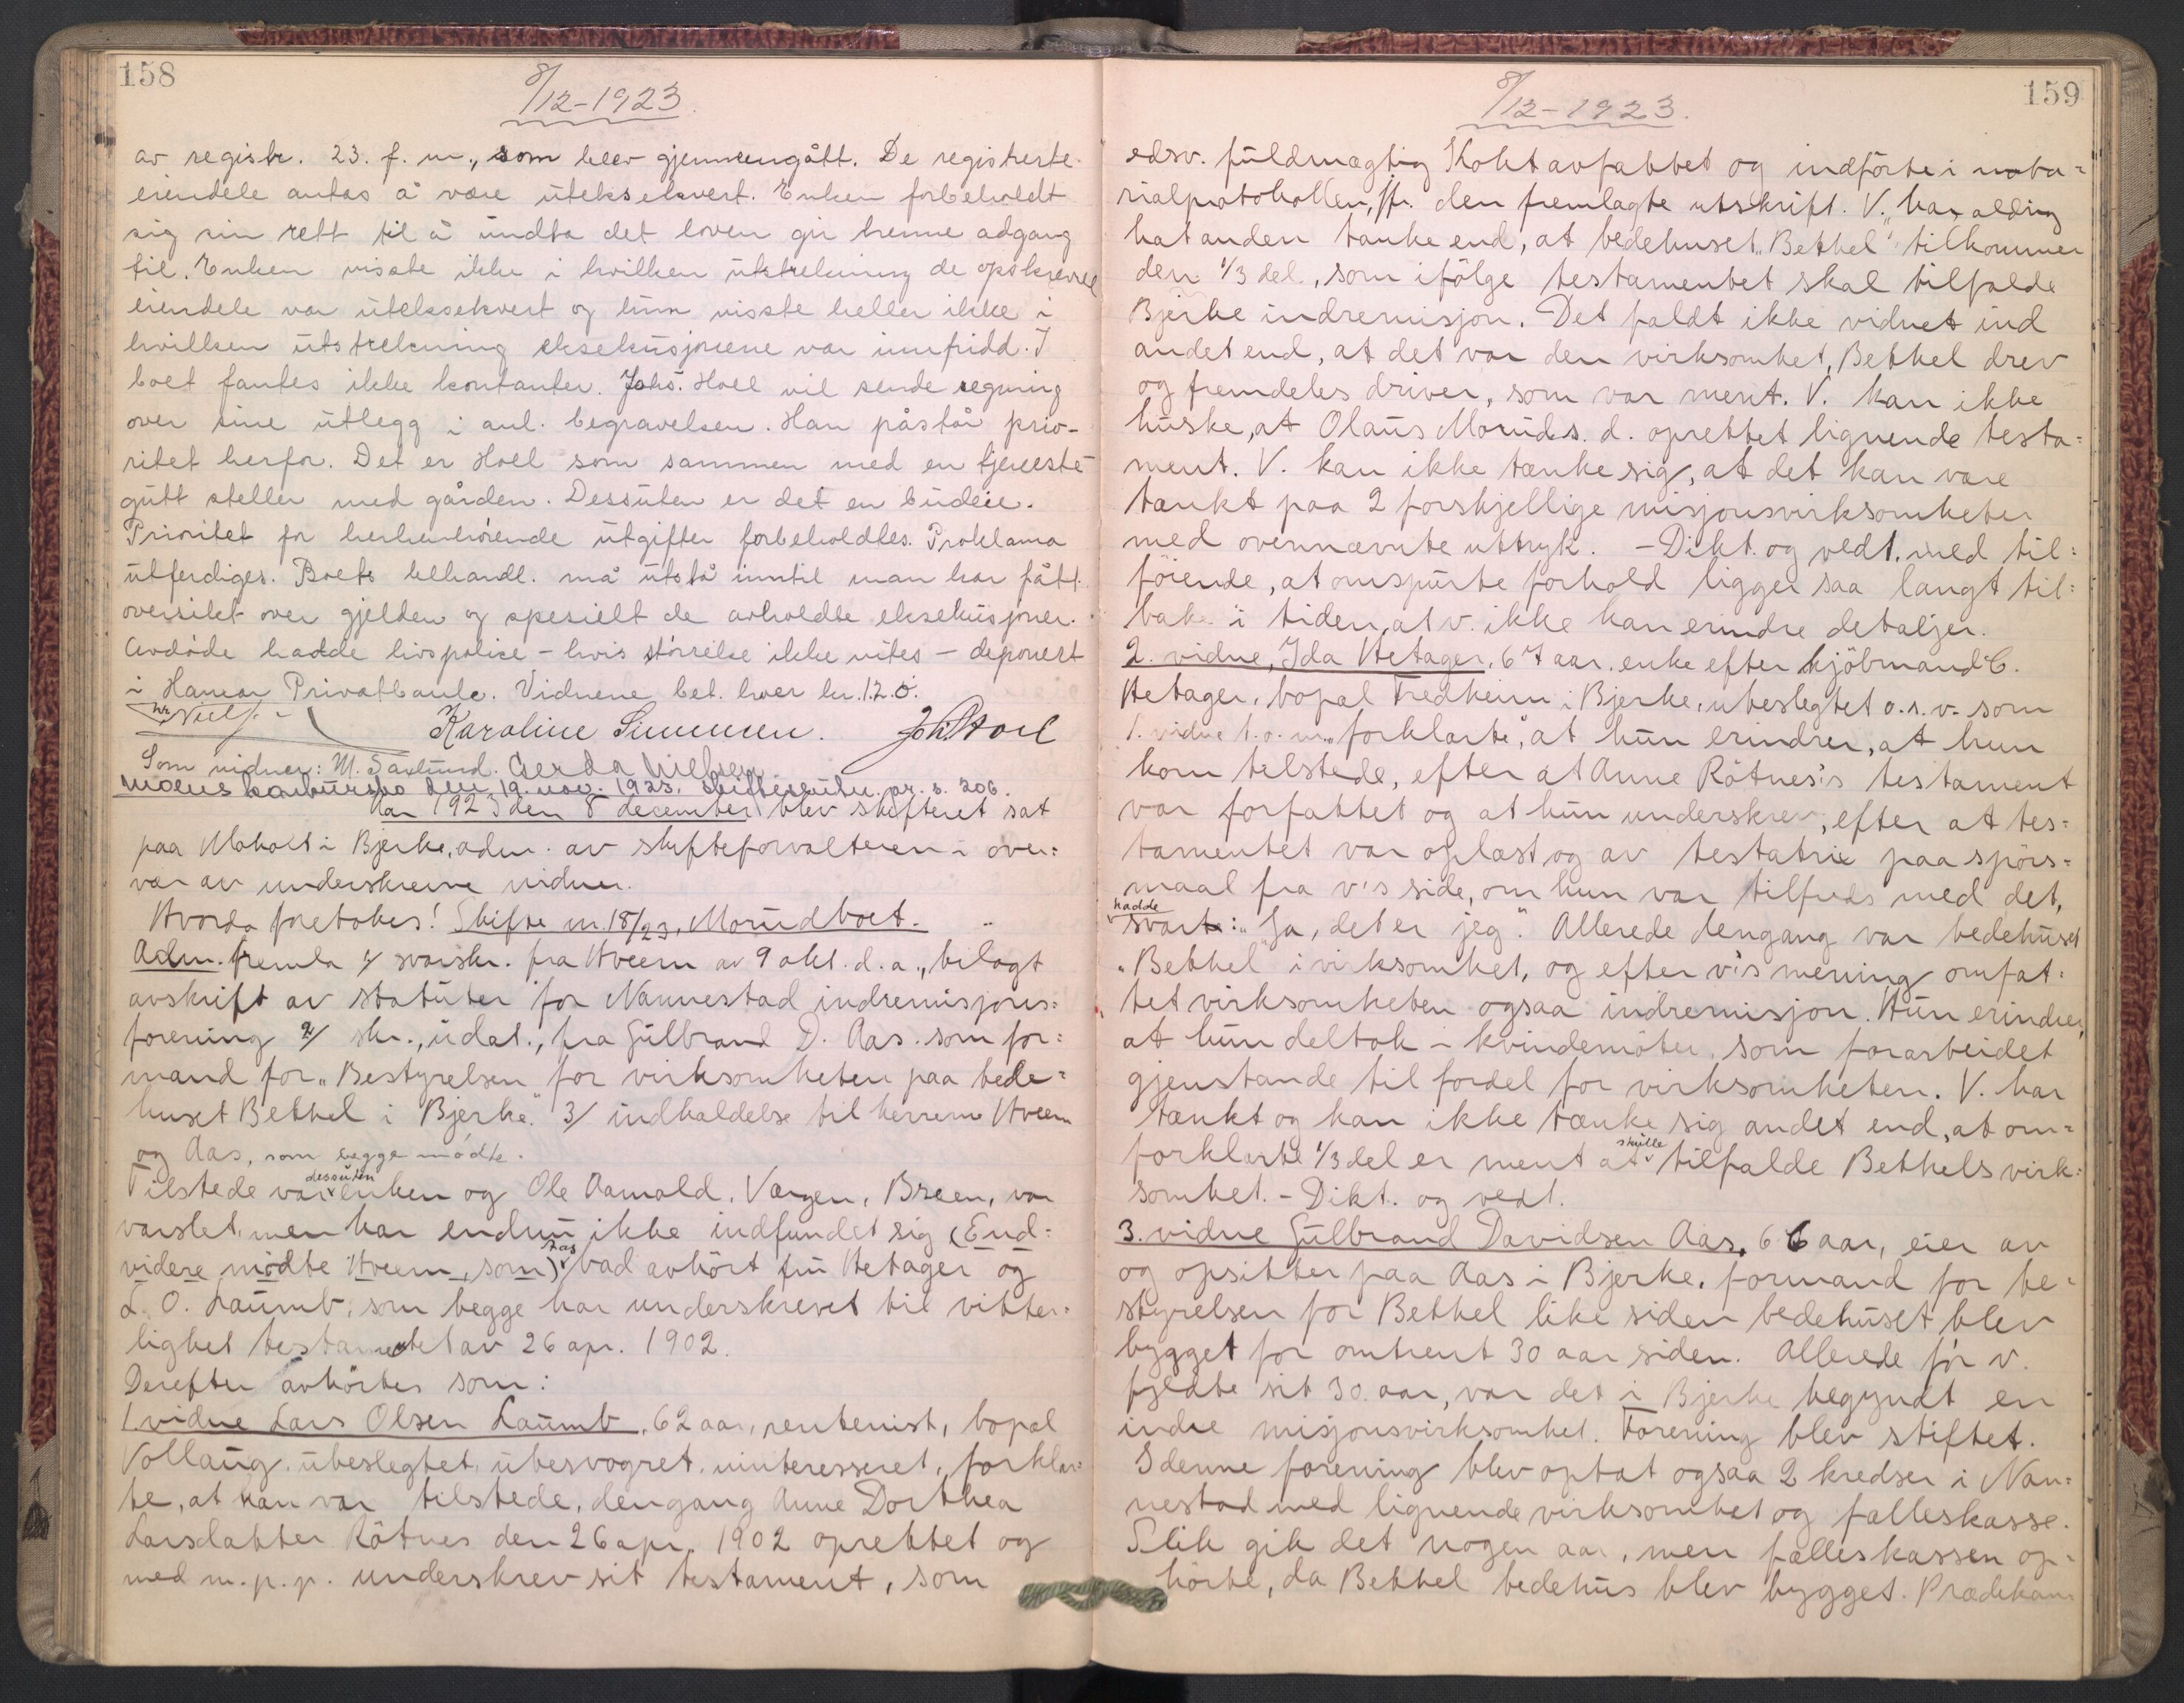 158
8/12-1923.
av registr. 23. f. m., som blev gjennemgått. De registrerte
eiendele antas å være uteksekvert. Enken forbeholdt
sig sin rett til å undta det loven gir henne adgang
til. Enken visste ikke i hvilken utstrekning de opskrevne
eiendele var uteksekvert og hun visste heller ikke i
hvilken utstrekning eksekusjonene var innfridd. I
boet fantes ikke kontanter. Johs. Hoel vil sende regning
over sine utlegg i anl. begravelsen. Han påstår prio-
ritet herfor. Det er Hoel som sammen med en tjeneste-
gutt steller med gården. Dessuten er det en budeie.
Prioritet for herhenhørende utgifter forbeholdtes. Proklama
utferdiges. Boets behandl. må utstå inntil man har fått
oversikt over gjelden og spesielt de avholdte eksekusjoner.
Avdøde hadde livspolise - hvis størrelse ikke vites - deponert
i Hamar Privatbank. Vidnene bet. hver kr. 1.20.
Karoline Simensen. Joh. Hoel
Som vidner: M. Saxlund. Gerda Nielsen
konkursbo den 19. nov. 1925. skiftesutn. pr. s. 206.
Aar 1923 den 8 december blev skifteret sat
paa Moholt i Bjerke, adm. av skifteforvalteren i over=
vær av underskrevne vidner.
Hvorda foretokes: Skifte nr. 18/23, Morudboet.
Adm. fremla 1/ svarskr. fra Hveem av 9 okt. d. a., bilagt
avskrift av statuter for Nannestad indremisjons=
forening 2/ skr., udat., fra Gulbrand D. Aas som for=
mand for "Bestyrelsen for virksomheten paa bede=
huset Bethel i Bjerke." 3/ indkaldelse til herrene Hveem
og Aas, som begge mødte.
Tilstede var dessuten enken og Ole Aamold. Værgen, Breen, var
varslet, men har endnu ikke indfundet sig (End=
videre mødte Hveem, som) Aas bad avhørt fru Hetager og
L. O. Laumb, som begge har underskrevet til vitter=
lighet testamentet av 26 apr. 1902.
Derefter avhørtes som:
1. vidne Lars Olsen Laumb, 62 aar, rentenist, bopæl
Vollaug, ubeslegtet, ubesvogret, uinteresseret, forklar=
te, at han var tilstede, dengang Anne Dorthea
Larsdatter Rötnes den 26 apr. 1902 oprettet og
med m. p. p. underskrev sit testament, som
159
8/12-1923.
edsv. fuldmægtig Kokt avfattet og indførte i nota=
rialprotokollen, jfr. den fremlagte utskrift. V. har aldrig
hat anden tanke end, at bedehuset "Bethel" tilkommer
den 1/3 del, som ifølge testamentet skal tilfalde
Bjerke indremisjon. Det faldt ikke vidnet ind
andet end, at det var den virksomhet, Bethel drev
og fremdeles driver, som var ment. V. kan ikke
huske, at Olaus Morud s. d. oprettet lignende testa=
ment. V. kan ikke tænke sig, at det kan være
tænkt paa 2 forskjellige misjonsvirksomheter
med ovennævnte uttryk. - Dikt. og vedt. med til=
føiende, at omspurte forhold ligger saa langt til=
bake i tiden, at v. ikke kan erindre detaljer.
2. vidne, Ida Hetager, 67 aar, enke efter kjöbmand C.
Hetager, bopæl Fredheim i Bjerke, ubeslegtet o. s. v. som
1. vidne t. o. m. "forklarte", at hun erindrer, at hun
kom tilstede, efter at Anne Rötnes's testament
var forfattet og at hun underskrev, efter at tes=
tamentet var oplæst og av testatrix paa spørs=
maal fra v's side, om hun var tilfreds med det,
hadde svart: "Ja, det er jeg". Allerede dengang var bedehuset
"Bethel" i virksomhet, og efter v's mening omfat=
tet virksomheten ogsaa indremisjon. Hun erindrer,
at hun deltok i kvindemøter, som forarbeidet
gjenstande til fordel for virksomheten. V. har
tænkt og kan ikke tænke sig andet end, at om=
forklarte 1/3 del er ment at skulle tilfalde Bethels virk=
somhet. - Dikt. og vedt.
3. vidne Gulbrand Davidsen Aas, 66 aar, eier av
og opsitter paa Aas i Bjerke, formand for be=
styrelsen for Bethel like siden bedehuset blev
bygget for omtrent 30 aar siden. Allerede før v.
fyldte sit 30. aar, var det i Bjerke begyndt en
indre misjonsvirksomhet. Forening blev stiftet.
I denne forening blev optat ogsaa 2 kredser i Nan=
nestad med lignende virksomhet og fælleskasse.
Slik gik det nogen aar, men fælleskassen op=
hørte, da Bethel bedehus blev bygget. Prædikan